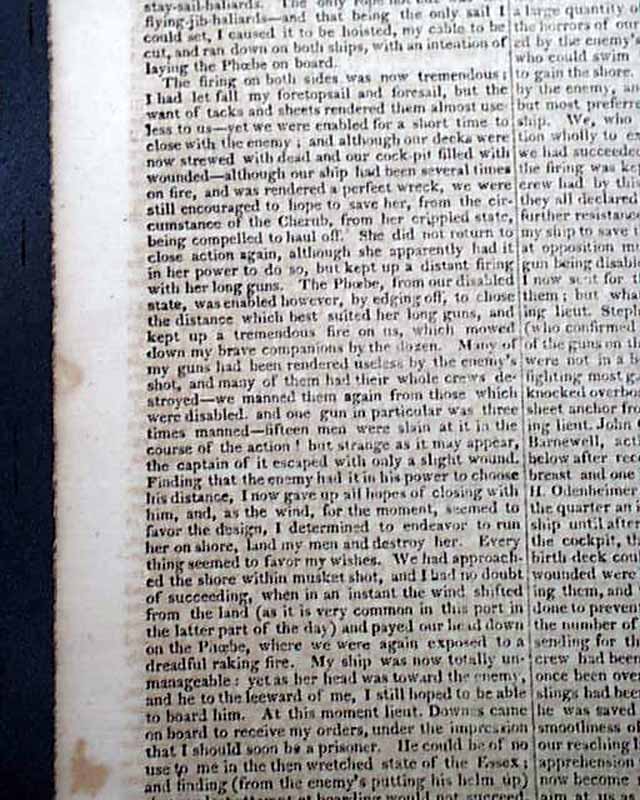 stay-sail-haliards. The only rope not cut was the
flying-jib-haliards—and that being the only sail I
could set, I caused it to be hoisted, my cable to be
cut, and ran down on both ships, with an intention of
laying the Phœbe on board.
The firing on both sides was now tremendous;
I had let fall my foretopsail and foresail, but the
want of tacks and sheets rendered them almost use-
less to us—yet we were enabled for a short time to
close with the enemy; and although our decks were
now strewed with dead and our cock-pit filled with
wounded—although our ship had been several times
on fire, and was rendered a perfect wreck, we were
still encouraged to hope to save her, from the cir-
cumstance of the Cherub, from her crippled state,
being compelled to haul off. She did not return to
close action again, although she apparently had it
in her power to do so, but kept up a distant firing
with her long guns. The Phœbe, from our disabled
state, was enabled however, by edging off, to chose
the distance which best suited her long guns, and
kept up a tremendous fire on us, which mowed
down my brave companions by the dozen. Many of
my guns had been rendered useless by the enemy's
shot, and many of them had their whole crews de-
stroyed—we manned them again from those which
were disabled. and one gun in particular was three
times manned—fifteen men were slain at it in the
course of the action! but strange as it may appear,
the captain of it escaped with only a slight wound.
Finding that the enemy had it in his power to choose
his distance, I now gave up all hopes of closing with
him, and, as the wind, for the moment, seemed to
favor the design, I determined to endeavor to run
her on shore, land my men and destroy her. Every
thing seemed to favor my wishes. We had approach-
ed the shore within musket shot, and I had no doubt
of succeeding, when in an instant the wind shifted
from the land (as it is very common in this port in
the latter part of the day) and payed our head down
on the Phœbe, where we were again exposed to a
dreadful raking fire. My ship was now totally un-
manageable: yet as her head was toward the enemy,
and he to the leeward of me, I still hoped to be able
to board him. At this moment lieut. Downes came
on board to receive my orders, under the impression
that I should soon be a prisoner. He could be of no
use to me in the then wretched state of the Essex;
and finding (from the enemy's putting his helm up)
attempt at boarding would not succeed
a large quantity o
the horrors of our
ed by the enemy's
who could swim
to gain the shore.
by the enemy, an
but most preferr
ship. We, who
tion wholly to ex
we had succeeded
the firing was kep
crew had by thi
they all declared
further resistanc
my ship to save t
at opposition m
gun being disabl
I now sent for t
them; but wha
ing lieut. Steph
(who confirmed
of the guns on th
were not in a b
fighting most ga
knocked overbo
sheet anchor fro
ing lieut. John G
Barnewell, act
below after rece
breast and one
H. Odenheimer
the quarter an i
ship until after
the cockpit, th
birth deck coul
wounded were
ing them, and
done to preven
the number of
sending for th
crew had been
once been over
slings had bee
he was saved
smoothness of
our reaching l
apprehension
now become
aim at us as